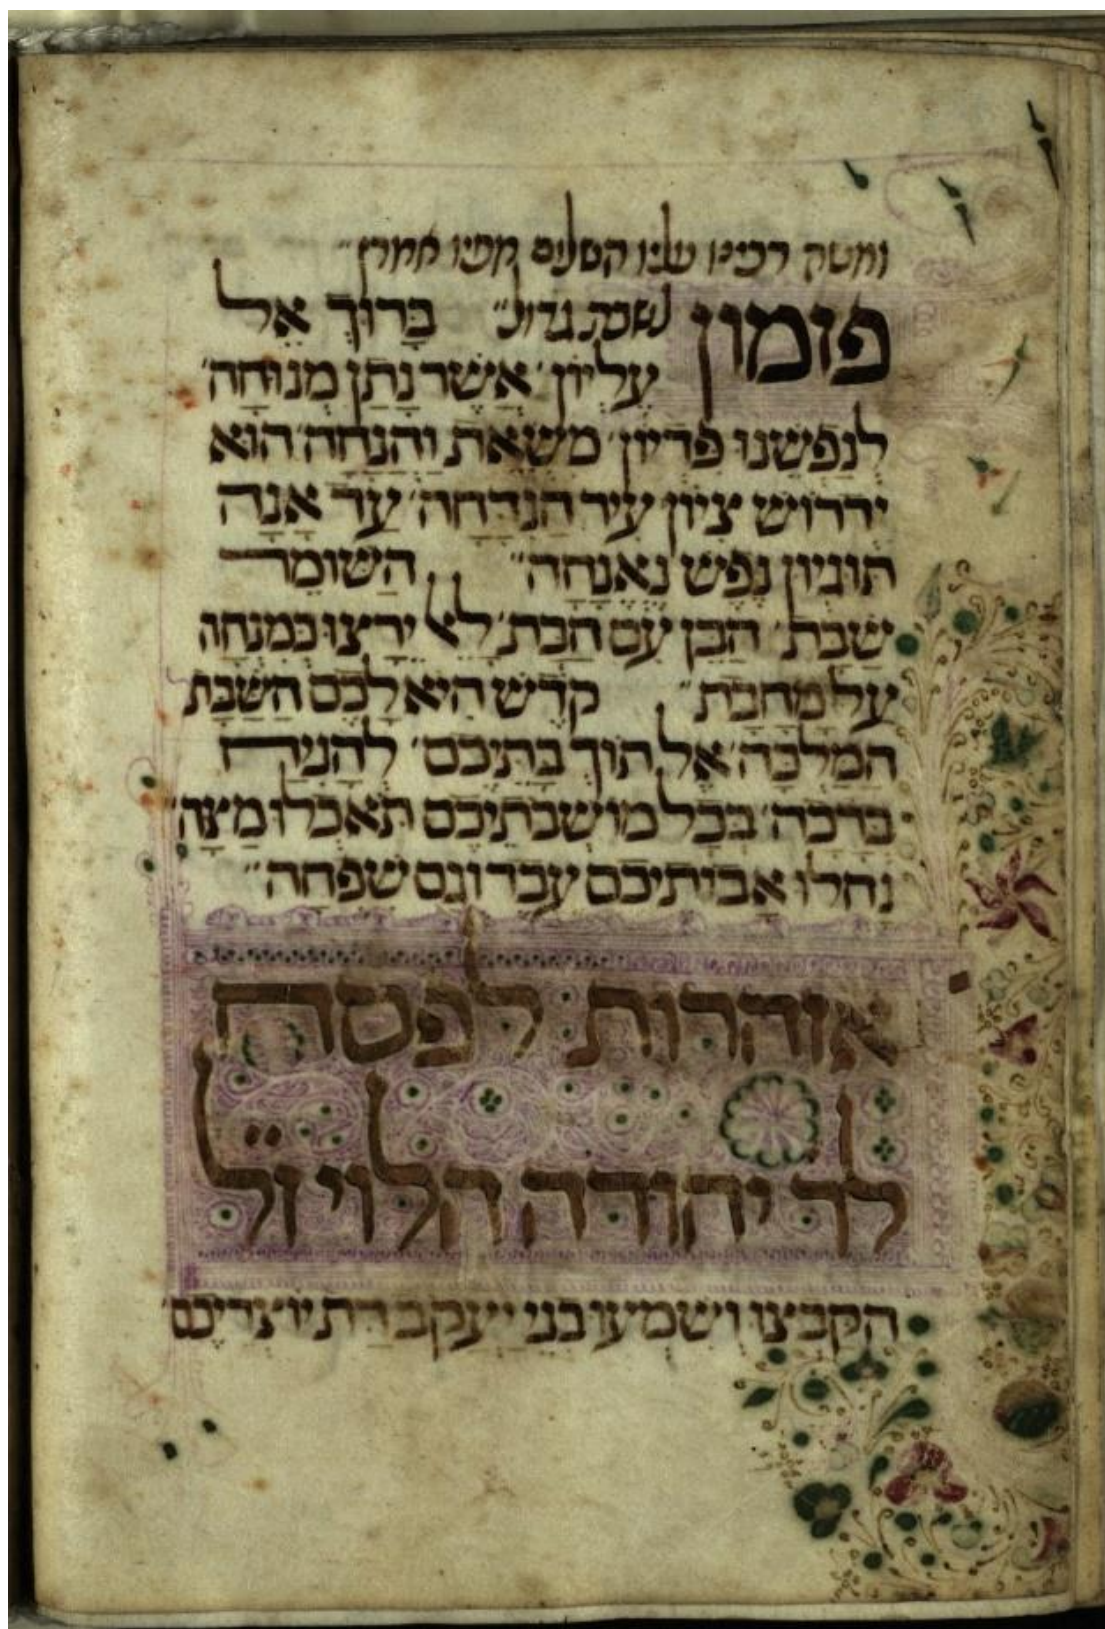 פזמון שבת גדול״ בָּרוּךְ אֵל
עֶלְיוֹן׳ אֲשֶׁר נָתַן מְנוּחָה׳
לְנַפְשֵׁנוּ פִדְיוֹן׳ מִשֵּׁאת וַהֲנָחָה׳ הוּא
יִדְרוֹש צִיּוֹן עִיר הַנִּדָּחָה׳ עַד אָנָה
תּוּגְיוֹן נֶפֶש נֶאֱנָחָה״ הַשּׁוֹמֵר
שַׁבָּת׳ הַבֵּן עִם הַבַּת׳ לָאֵל יֵרָצוּ כְּמִנְחָה
עַל מַחֲבַת״ קֹדֶש הִיא לָכֶם הַשַּׁבָּת
הַמַּלְכָּה׳ אֶל תּוֹךְ בָּתֵּיכֶם׳ לְהָנִיחַ
בְּרָכָה׳ בְּכָל מוֹשְׁבֹתֵיכֶם תֹּאכְלוּ מַצָּה׳
אזהרות לפסח
לר׳ יהודה הלוי ז״ל
הִקָּבְצוּ וְשִׁמְעוּ בְּנֵי יַעֲקֹב דַּת יוֹצְרֵיכֶם׳